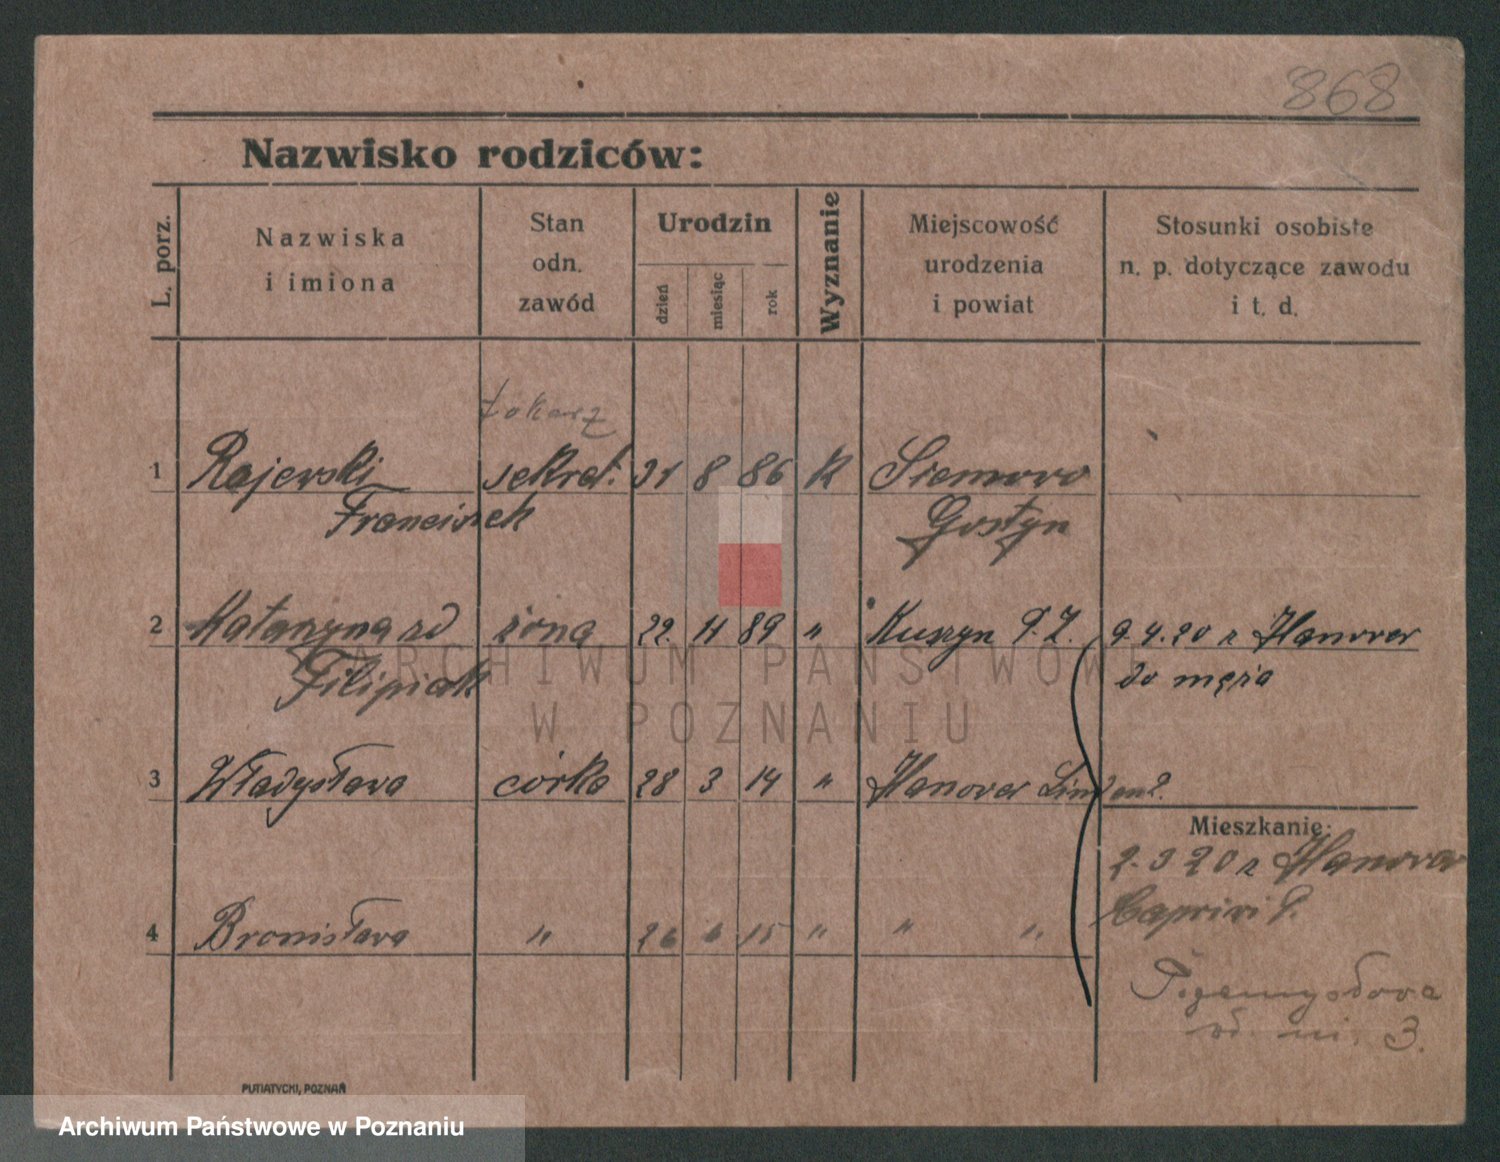 868
Nazwisko rodziców:
L. porz.
Nazwiska
i imiona
Stan
odn.
zawód
Urodzin
dzień
miesiąc
rok
Wyznanie
Miejscowość
urodzenia
i powiat
Stosunki osobiste
n. p. dotyczące zawodu
i t. d.
tokarz
1 Rajewski sekret. 31 8 86 K Siemowo
Franciszek Gostyn
2 Katarzyna zd żona 22. 11 89 „ Kuszyn 9.4.20 z Hanower
Filipiak do męża
3 Władysława córka 28 3 14 „ Hanower Linden
Mieszkanie:
2.3 20 z Hanower
Caprivi
4 Bronisława „ 26 6 15 „ „ „
Przemysłowa
3.
PUTIATYCKI, POZNAŃ
ARCHIWUM PAŃSTWOWE
W POZNANIU
Archiwum Państwowe w Poznaniu